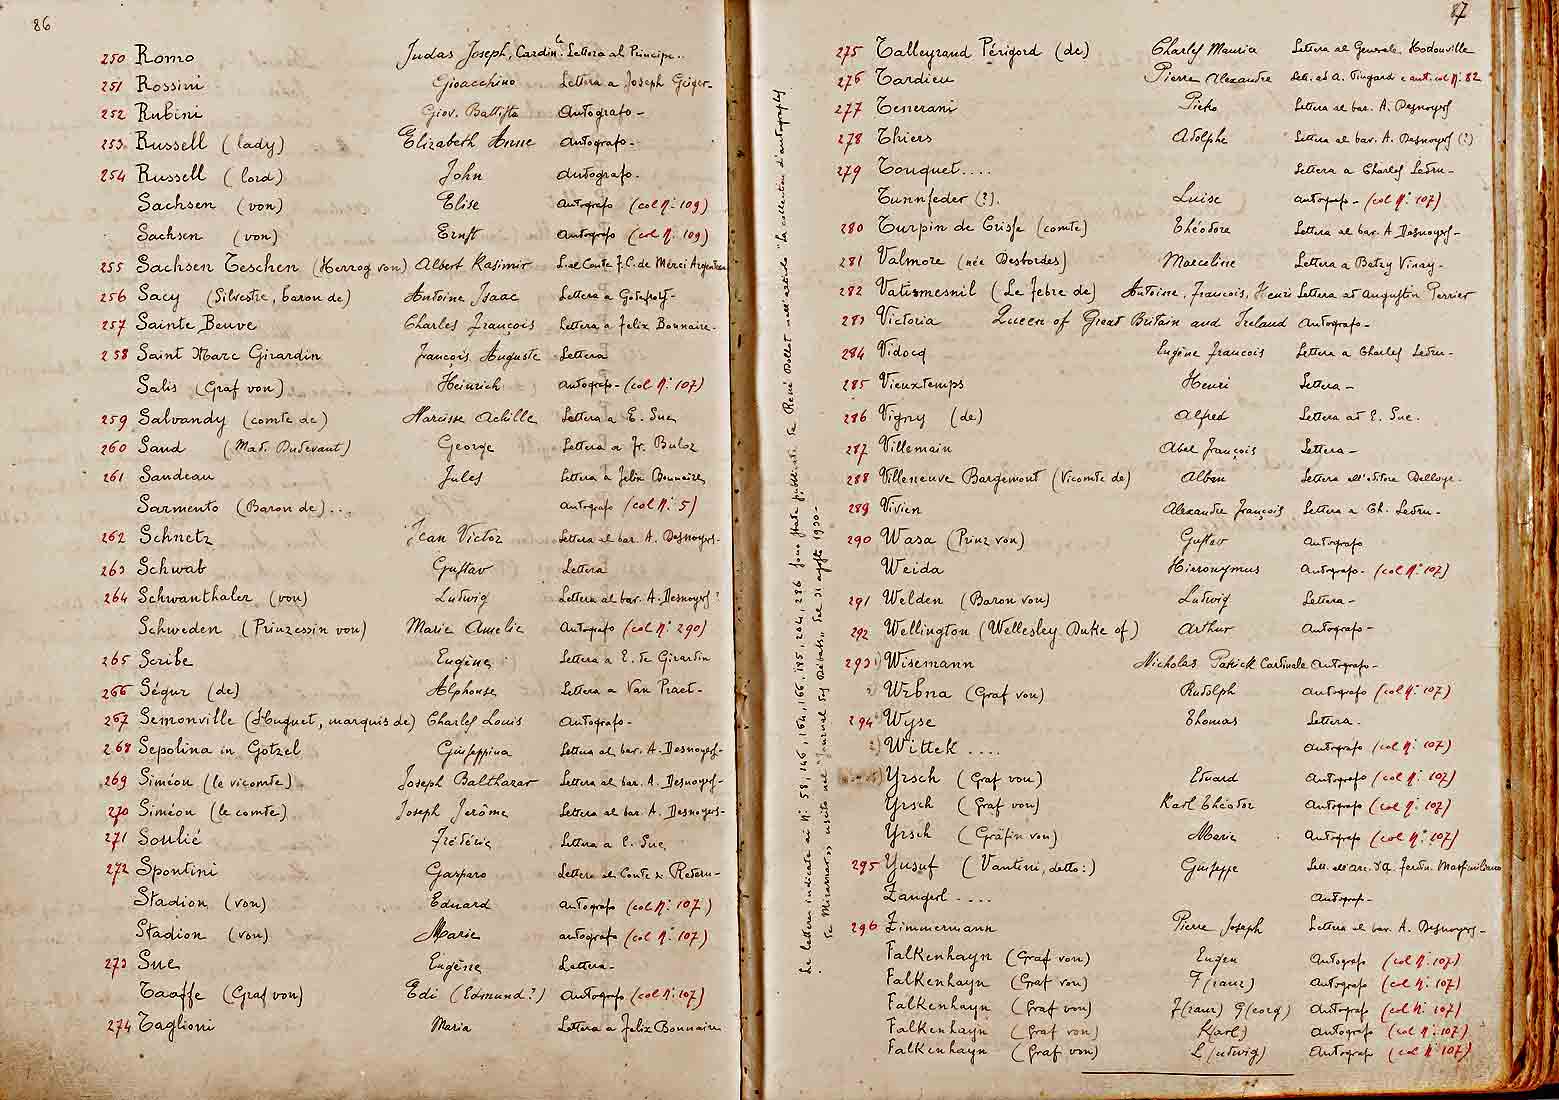 86
250 Romo Judas Joseph, Cardin.le Lettera al Principe..
251 Rossini Gioacchino Lettera a Joseph Geiger-
252 Rubini Giov. Battista Autografo-
253. Russell (lady) Elizabeth Anne Autografo-
254 Russell (lord) John Autografo.
Sachsen (von) Elise Autografo (col N: 109)
Sachsen (von) Ernst Autografo (col N: 109)
255 Sachsen Teschen (Herzog von) Albert Kasimir L. al Conte F.C. de Merci Argenteau
256 Sacy (Silvestre, baron de) Antoine Isaac Lettera a
257 Sainte Beuve Charles François Lettera a Felix Bonnaire.
258 Saint Marc Girardin François Auguste Lettera
Salis (Graf von) Heinrich Autografo- (col N: 107)
259 Salvandy (comte de) Narcisse Achille Lettera a E. Sue
260 Sand (Mad. Dudevant) George Lettera a Fr. Buloz
261 Sandeau Jules Lettera a Felix Bonnaire
Sarmento (Baron de)... Autografo (col N: 5)
262 Schnetz Jean Victor Lettera al bar. A. Desnoyers-
263 Schwab Gustav Lettera
264 Schwanthaler (von) Ludwig Lettera al bar. A. Desnoyers?
Schweden (Prinzessin von) Marie Amelie Autografo (col N: 290)
265 Scribe Eugène Lettera a E. de Girardin
266 Ségur (de) Alphonse Lettera a Van Praet-
267 Semonville (Huguet, marquis de) Charles Louis Autografo-
268 Sepolina in Gotzel Giuseppina Lettera al bar. A. Desnoyers-
269 Siméon (le vicomte) Joseph Balthazar Lettera al bar. A. Desnoyers-
270 Siméon (le comte) Joseph Jerôme Lettera al bar. A. Desnoyers-
271 Soulié Frédéric Lettera a E. Sue
272 Spontini Gasparo Lettera al Conte de Redern-
Stadion (von) Eduard Autografo (col N: 107)
Stadion (von) Marie autografo (col N: 107)
273 Sue Eugène Lettera-
Taaffe (Graf von) Edi (Edmund?) Autografo (col N: 107)
274 Taglioni Maria Lettera a Felix Bonnaire
87
275 Talleyrand Périgord (de) Charles Mauria Lettera al Generale Hodouville
276 Tardieu Pierre Alexandre Lett. ad A. e aut. col N: 82
277 Tenerani Pietro Lettera al bar. A. Desnoyers
278 Thiers Adolphe Lettera al bar. A. Desnoyers (?)
279 Touquet.... Lettera a Charles Ledru-
Tunnfeder (?). Luise autografo- (col N: 107)
280 Turpin de Crisse (comte) Théodore Lettera al bar. A Desnoyers-
281 Valmore (née Desbordes) Marceline Lettera a Betzy Vinay-
282 Vatismesnil (Le Febre de) Antoine, François, Henri Lettera ad Augustin Perrier
283 Victoria Queen of Great Britain and Ireland Autografo-
284 Vidocq Eugène François Lettera a Charles Ledru-
285 Vieuxtemps Henri Lettera-
286 Vigny (de) Alfred Lettera ad E. Sue.
287 Villemain Abel François Lettera-
288 Villeneuve Bargemont (Vicomte de) Alban Lettera all'editore Delloye.
289 Vivien Alexandre François Lettera a Ch. Ledru-
290 Wasa (Prinz von) Gustav Autografo
Weida Hieronymus Autografo- (col N: 107)
291 Welden (Baron von) Ludwig Lettera-
292 Wellington (Wellesley Duke of) Arthur Autografo-
293 Wisemann Nicholas Patrick Cardinale Autografo-
Wrbna (Graf von) Rudolph Autografo (col N: 107)
294 Wyse Thomas Lettera.
Wittek .... Autografo (col N: 107)
Yrsch (Graf von) Eduard Autografo (col N: 107)
Yrsch (Graf von) Karl Théodor Autografo (col N: 107)
Yrsch (Gräfin von) Marie Autografo (col N: 107)
295 Yusuf (Vantini, detto:) Giuseppe Lett. all'arc. d'A. Ferdin. Massimiliano
Zangerl.... Autograf-
296 Zimmermann Pierre Joseph Lettera al bar. A. Desnoyers-
Falkenhayn (Graf von) Eugen Autografo (col N: 107)
Falkenhayn (Graf von) F(ranz) Autografo (col N: 107)
Falkenhayn (Graf von) F(ranz) G(eorg) Autografo (col N: 107)
Falkenhayn (Graf von) K(arl) Autografo (col N: 107)
Falkenhayn (Graf von) L(udwig) Autografo (col N 107)
Le lettere indicate ai N: 58, 146, 164, 166, 185, 204, 286 sono state pubblicate da René Dollot nell'articolo "La collection d'autographes
de Miramar" uscito nel "Journal des Débats" del 31 agosto 1930-